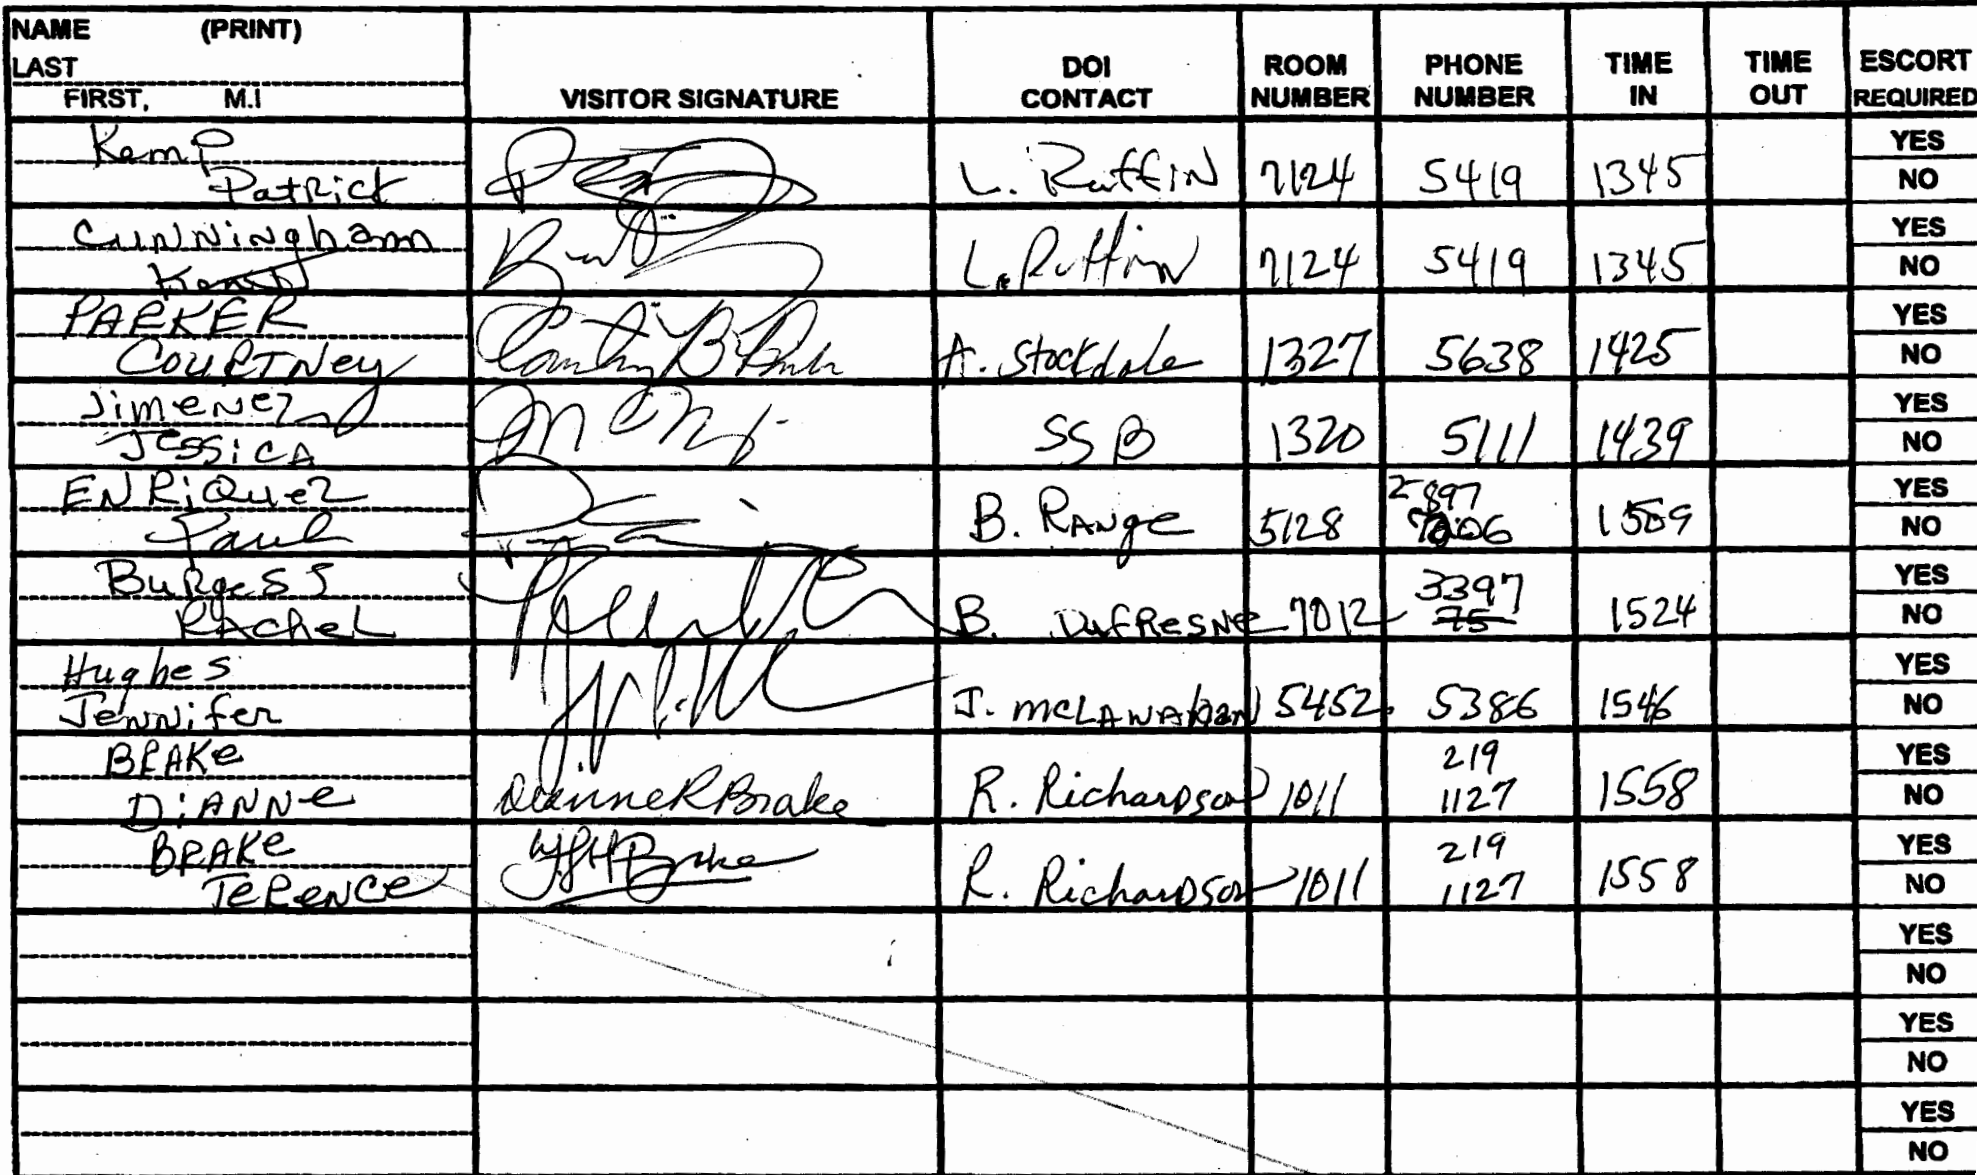 NAME (PRINT)
LAST
FIRST, M.I
VISITOR SIGNATURE
DOI CONTACT
ROOM NUMBER
PHONE NUMBER
TIME IN
TIME OUT
ESCORT REQUIRED
Kemp
Patrick
L. Ruffin 7124 5419 1345
YES
NO
Cunningham
L. Ruffin 7124 5419 1345
YES
NO
PARKER
COURTNEY
A. Stockdale 1327 5638 1425
YES
NO
Jimenez
Jessica
SSB 1320 5111 1439
YES
NO
ENRiQuez
Paul
B. Range 5128 2897 1509
YES
NO
Burgess
Rachel
B. Dufresne 7012 3397 75 1524
YES
NO
Hughes
Jennifer
J. McLanahan 5452 5386 1546
YES
NO
BRAKe
DiANNe
Dianne R Brake
R. Richardson 1011 219 1127 1558
YES
NO
BRAKe
TeReNCe
Brake
R. Richardson 1011 219 1127 1558
YES
NO
YES
NO
YES
NO
YES
NO